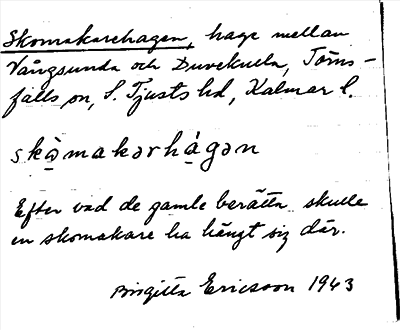 Skomakarehagen, hage mellan
Vångsunda och Duvekulla, Törns-
falls sn, S. Tjusts hd, Kalmar l.
skò̤makərhà̤gən
Efter vad de gamle berätta skulle
en skomakare ha hängt sig där.
Birgitta Ericsson 1943